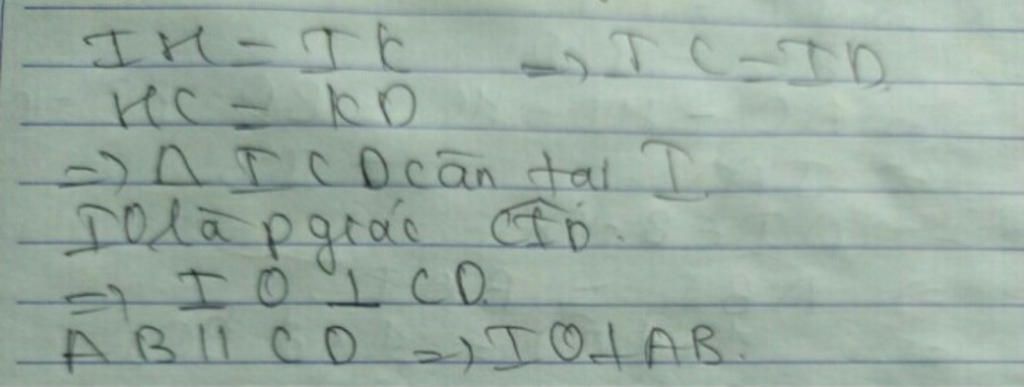 IH = IK => IC = ID
HC = KD
=> Δ ICD cān tại I.
IO là pgiác CÎD.
=> IO ⊥ CD.
AB // CD => IO ⊥ AB.